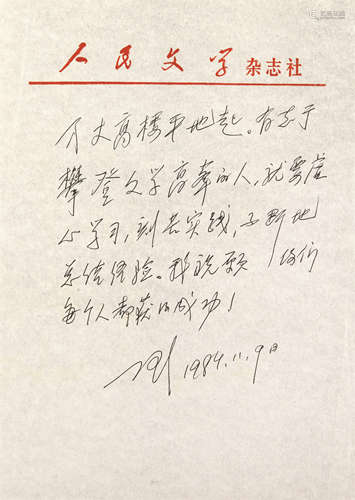 人民文学 杂志社
万丈高楼平地起。有志于
攀登文学高峰的人，就要虚
心学习，刻苦实践，不断地
总结经验。我祝愿你们
每个人都获得成功！
1984.11.9日